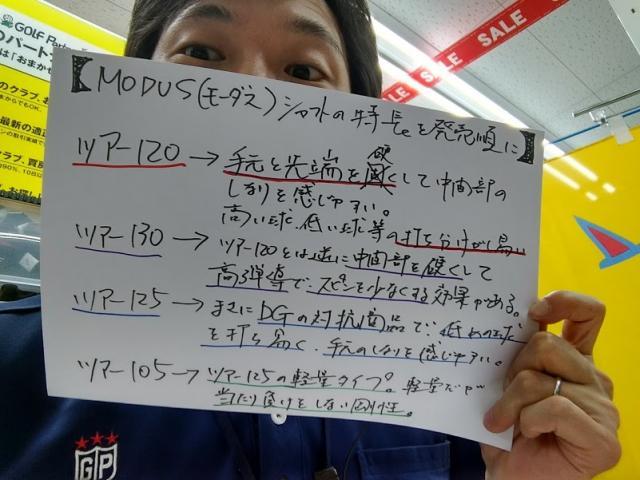 GOLF Par
のパート
は「おまかせ
のクラブ、お
SALE
SALE
SALE
最新の適正
【MODUS(モーダス)シャフトの特長を発売順に】
ツアー120→手元と先端を硬くして中間部の
しなりを感じやすい。
高い球、低い球等の打ち分けが易い
ツアー130→ツアー120とは逆に中間部を硬くして
高弾導で、スピンを少なくする効果がある。
ツアー125→まさにDGの対抗商品で、低めの球
を打ち易く、手元のしなりを感じやすい。
ツアー105→ツアー125の軽量タイプ。軽量だが
当たり負けをしない剛性。
GP